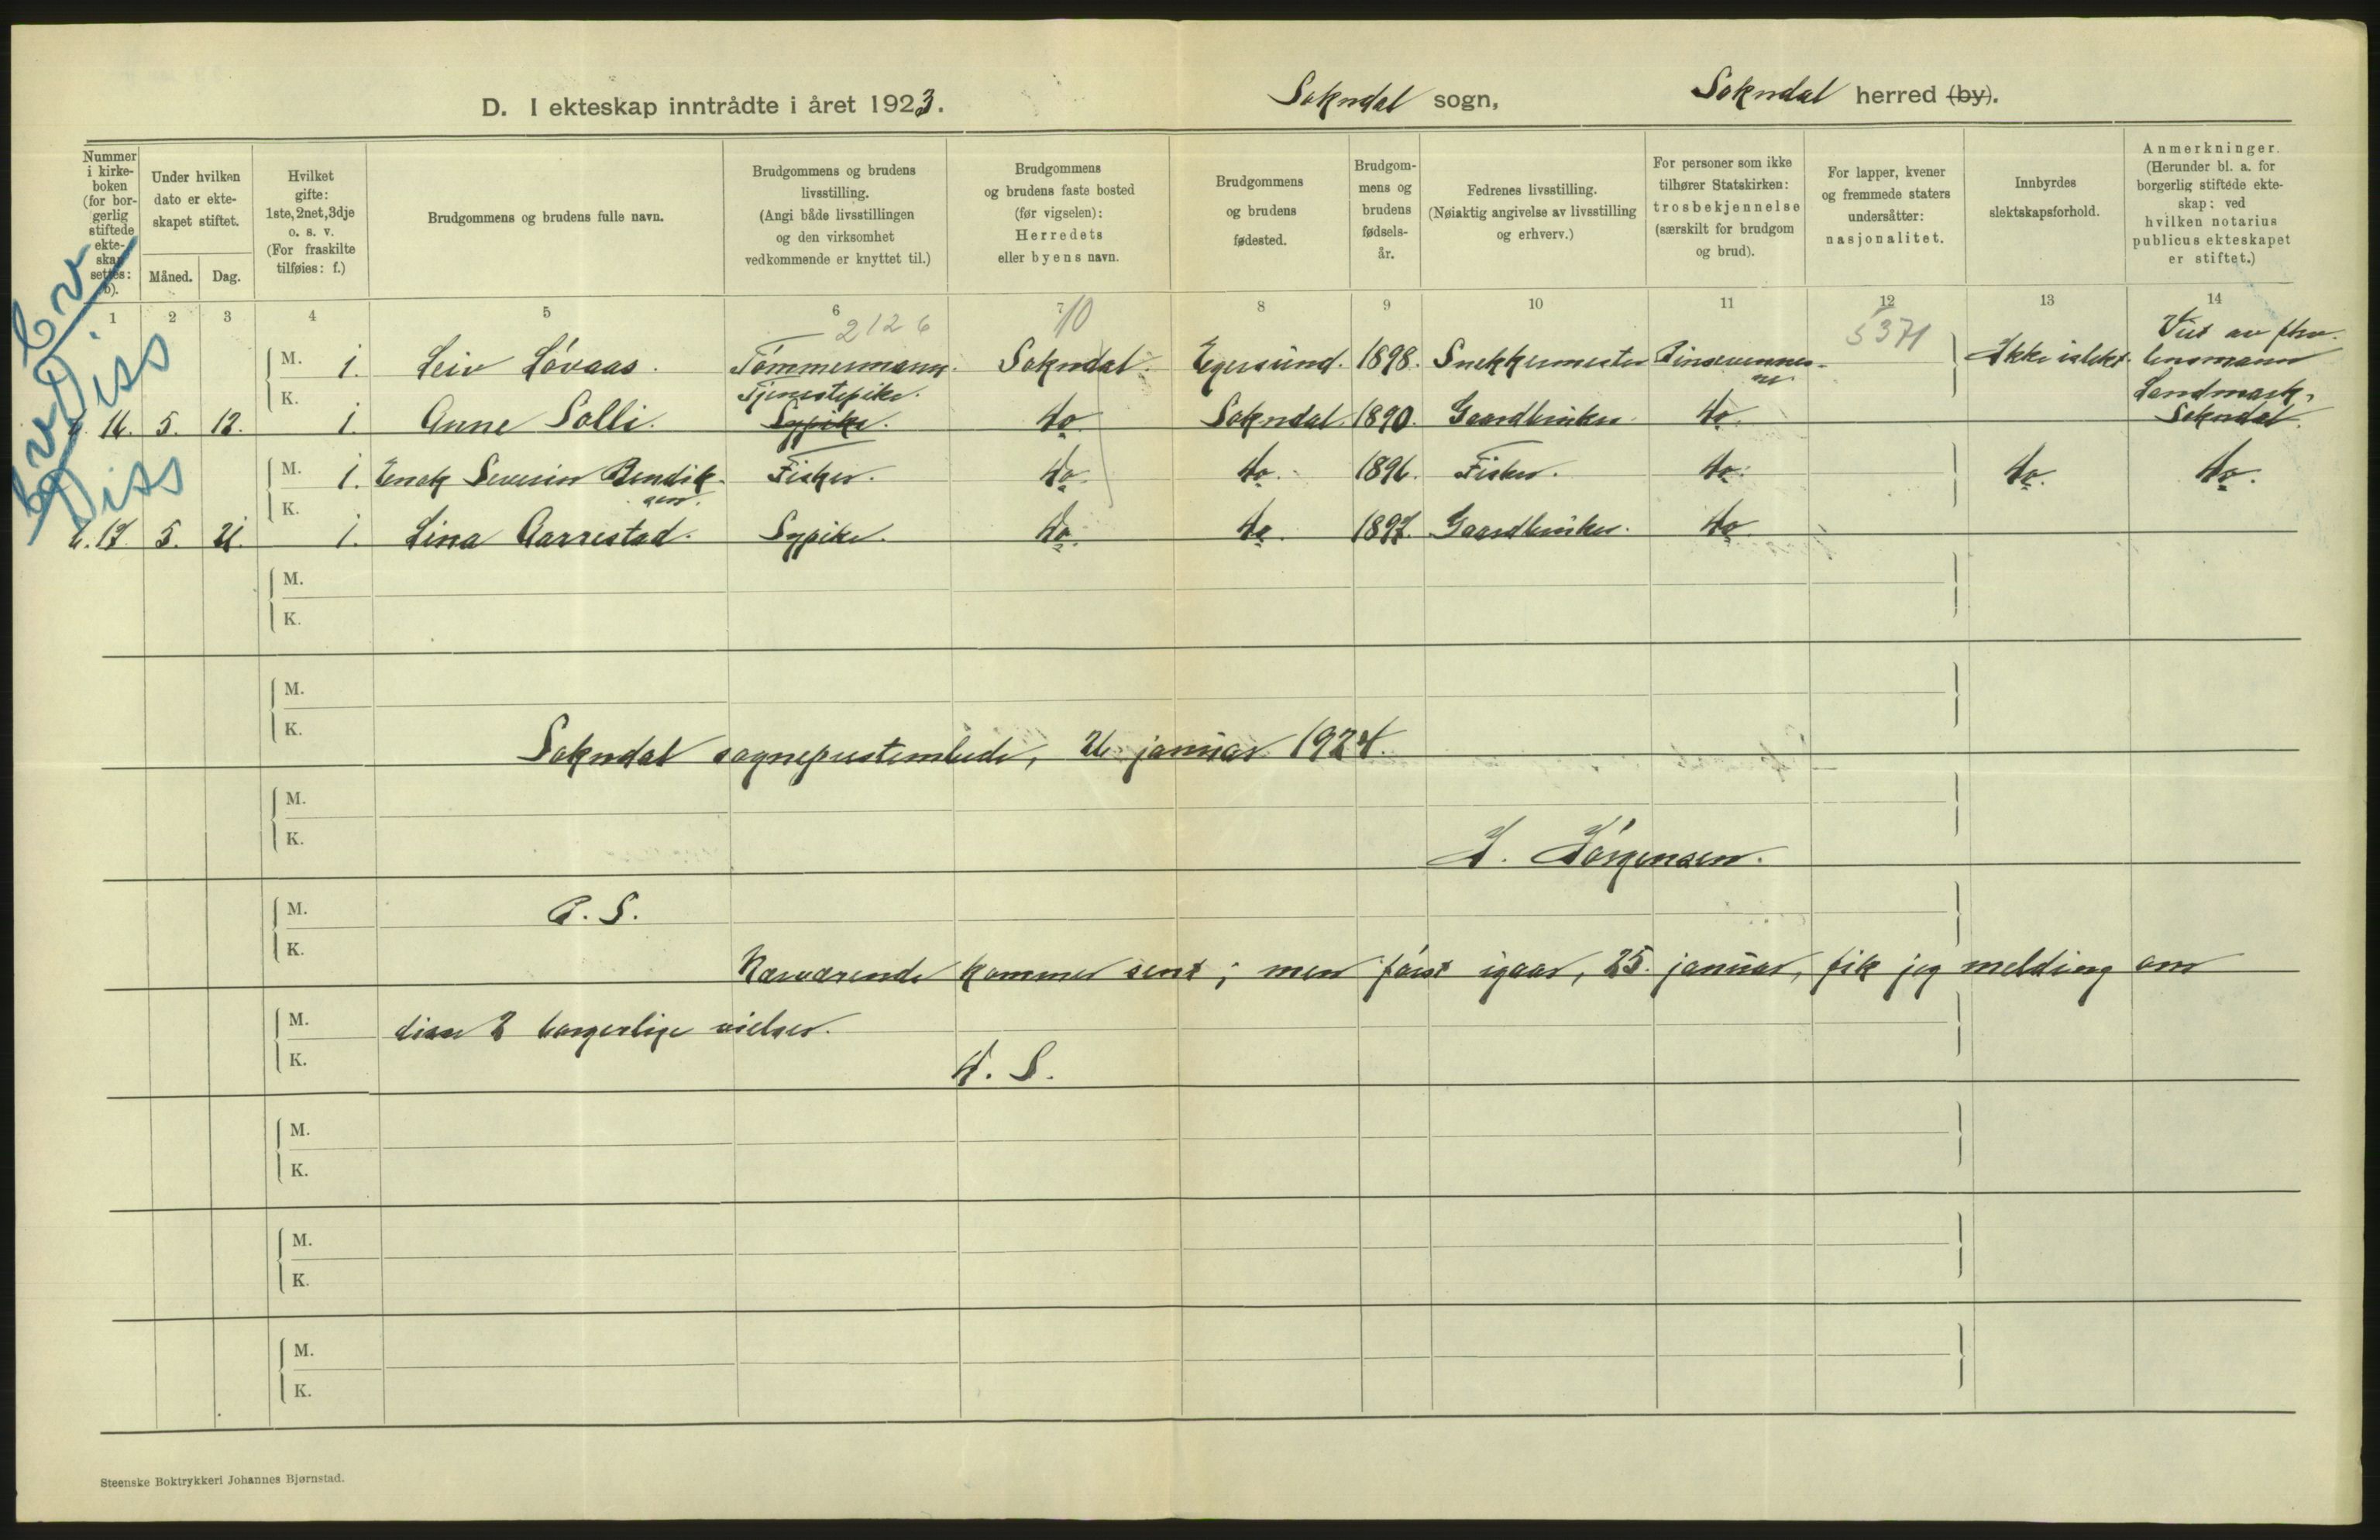 D. I ekteskap inntrådte i året 1923. Sokndal sogn, Sokndal herred (by).
Nummer i kirkeboken (for borgerlig stiftede ekteskap settes: b).
Under hvilken dato er ekteskapet stiftet.
Måned. Dag.
Hvilket gifte: 1ste, 2net, 3dje o. s. v. (For fraskilte tilføies: f.)
Brudgommens og brudens fulle navn.
Brudgommens og brudens livsstilling. (Angi både livsstillingen og den virksomhet vedkommende er knyttet til.)
Brudgommens og brudens faste bosted (før vigselen): Herredets eller byens navn.
Brudgommens og brudens fødested.
Brudgommens og brudens fødselsår.
Fedrenes livsstilling. (Nøiaktig angivelse av livsstilling og erhverv.)
For personer som ikke tilhører Statskirken: trosbekjennelse (særskilt for brudgom og brud).
For lapper, kvener og fremmede staters undersåtter: nasjonalitet.
Innbyrdes slektskapsforhold.
Anmerkninger. (Herunder bl. a. for borgerlig stiftede ekteskap: ved hvilken notarius publicus ekteskapet er stiftet.)
1 2 3 4 5 6 7 8 9 10 11 12 13 14
2126 10 5371
Diss
M. 1. Leiv Lóvaas. Tømmermann. Sokndal. Egersund. 1898. Snekkermester Pinsevennene. Ikke i slekt. Viet av fhv. lensmann Landmark, Sokndal.
b. 16. 5. 12. K. 1. Anne Solli. Tjenestepike. Sypike. do Sokndal. 1890. Gaardbruker. do.
Diss
M. 1. Enok Severin Bendiksen. Fisker. do. do. 1896. Fisker. do. do. do.
b. 17. 5. 21. K. 1. Lina Aarrestad. Sypike. do. do. 1897. Gaardbruker. do.
M.
K.
M.
K.
Sokndal sogneprestembede, 26. januar 1924.
M.
K.
Jørgensen.
M. P. S.
K.
Nærværende kommer sent; men først igaar, 25. januar, fik jeg melding om
M. disse 2 borgerlige vielser.
K.
D. S.
M.
K.
M.
K.
M.
K.
Steenske Boktrykkeri Johannes Bjørnstad.